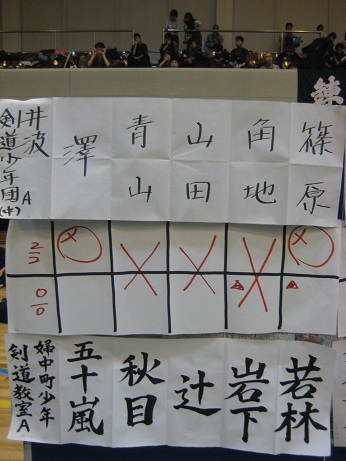 篠原
角地
山田
青山
澤
井波
剣道少年団A
(中)
2/3
0/0
若林
岩下
辻
秋目
五十嵐
婦中町少年
剣道教室A
錬